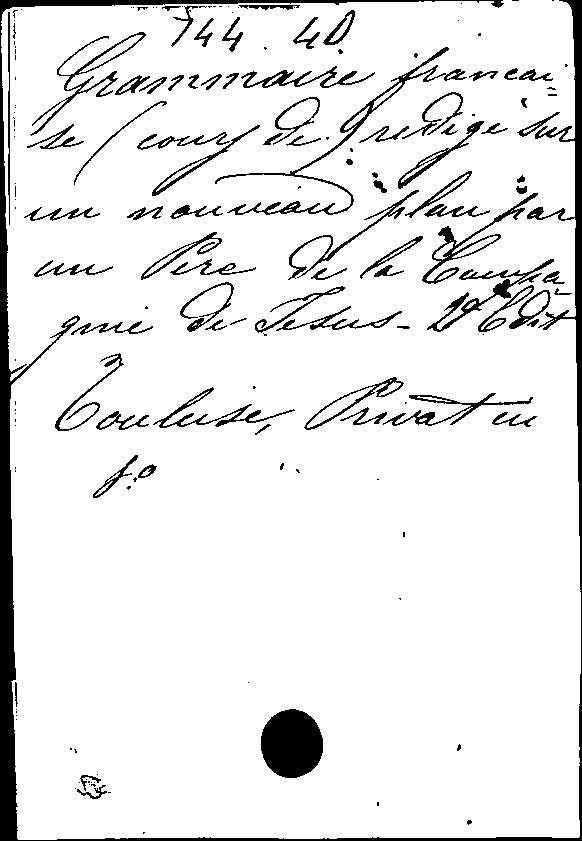 744 40
Grammaire françai=
se (cours de) redigé sur
un nouveau plan par
un Père de la Compa
gnie de Jesus - 2d Edit
Toulouse, Privat in
f.o